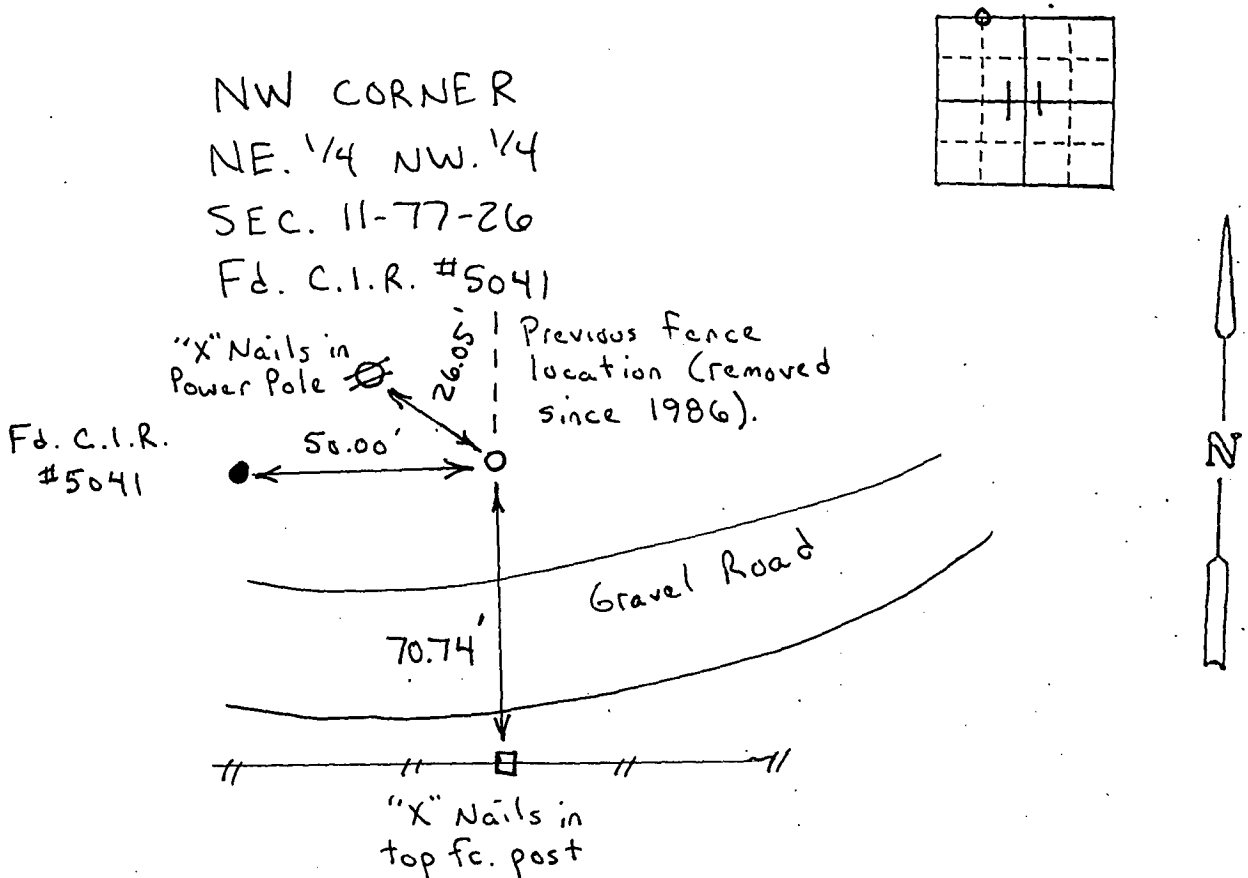 NW CORNER
NE. 1/4 NW. 1/4
SEC. 11-77-26
Fd. C.I.R. #5041
"X" Nails in
Power Pole
26.05'
Previous Fence
location (removed
since 1986).
Fd. C.I.R.
#5041
50.00'
N
Gravel Road
70.74'
"X" Nails in
top fc. post